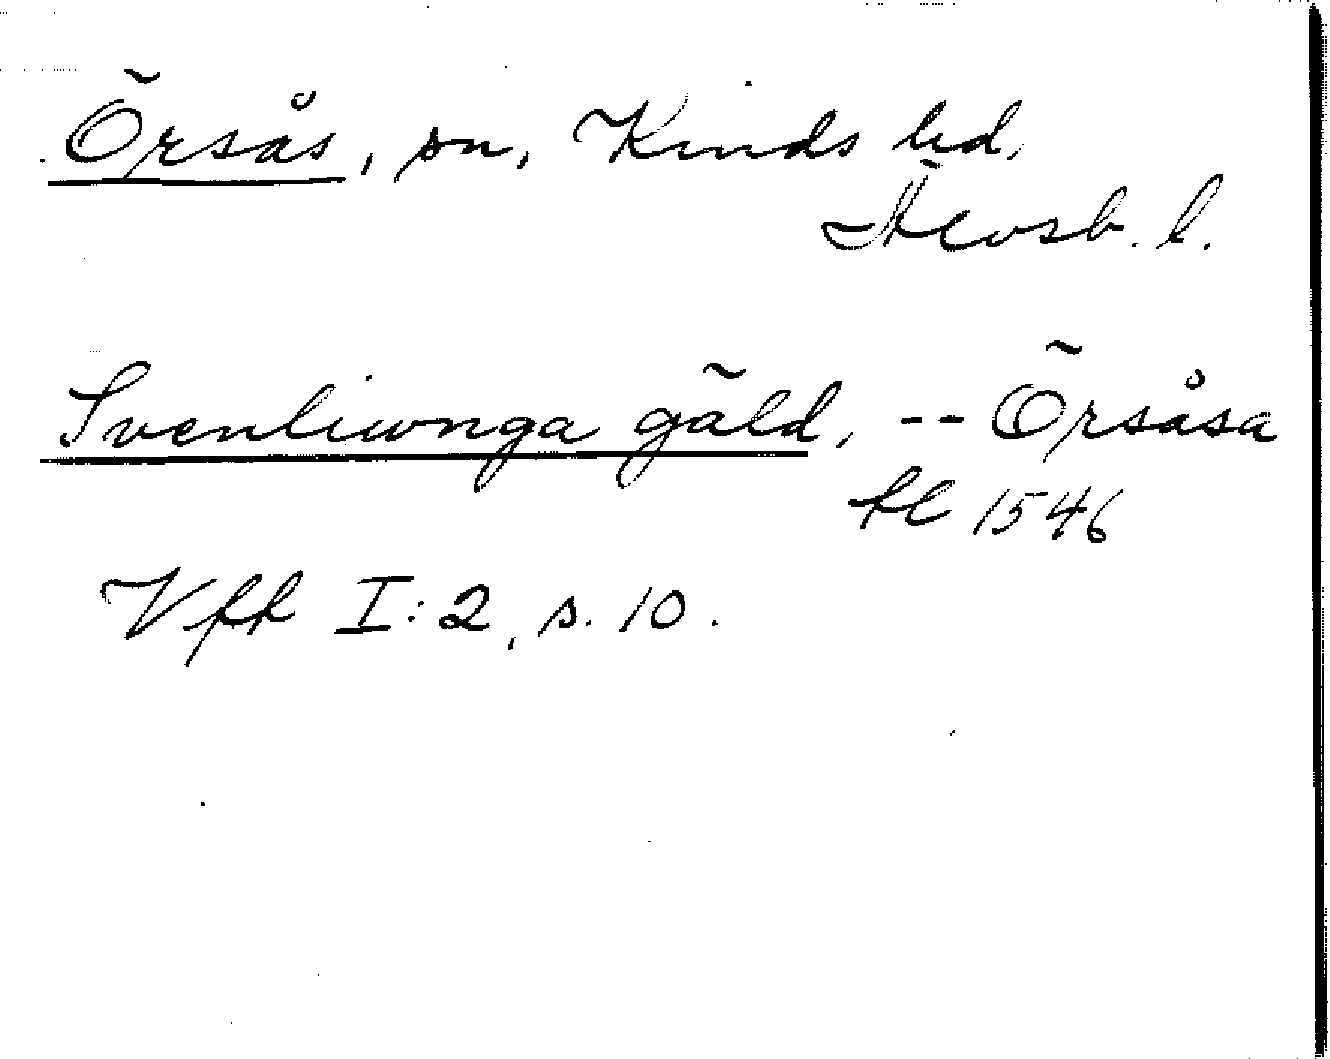 Örsås, sn, Kinds hd,
Älvsb. l.
Svenliwnga gäld, -- Örsåsa
kl 1546
Vfk I:2, s. 10.